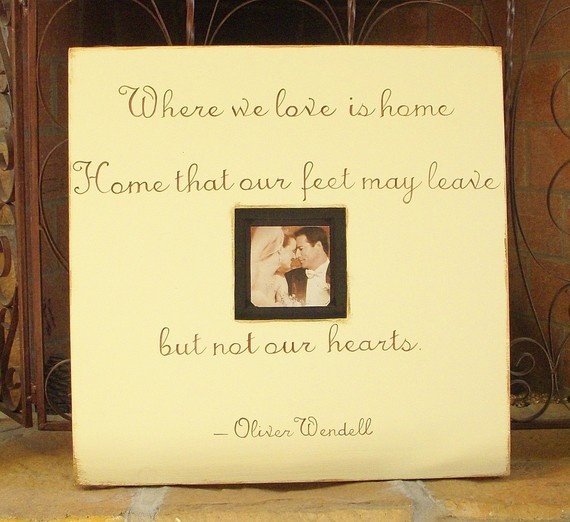 Where we love is home
Home that our feet may leave
but not our hearts.
– Oliver Wendell